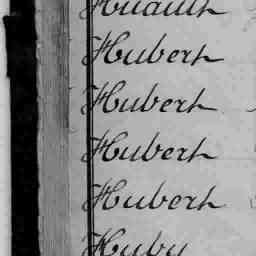 Huault
Hubert
Hubert
Hubert
Hubert
Huby